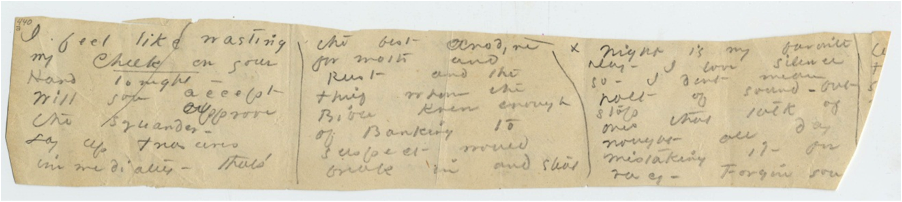 440
I feel like wasting
my Cheek on your
Hand tonight -
Will you accept
approve
the squander -
Lay up treasures
immediately - that's
the best Anodyne
for moth and
Rust and the
thief whom the
Bible knew enough
of Banking to
suspect would
break in and steal
x night is my favorite
Day - I love silence
so - I dont mean
halt of sound - but
stop
ones that talk of
nought all day
mistaking it for
Forgive you